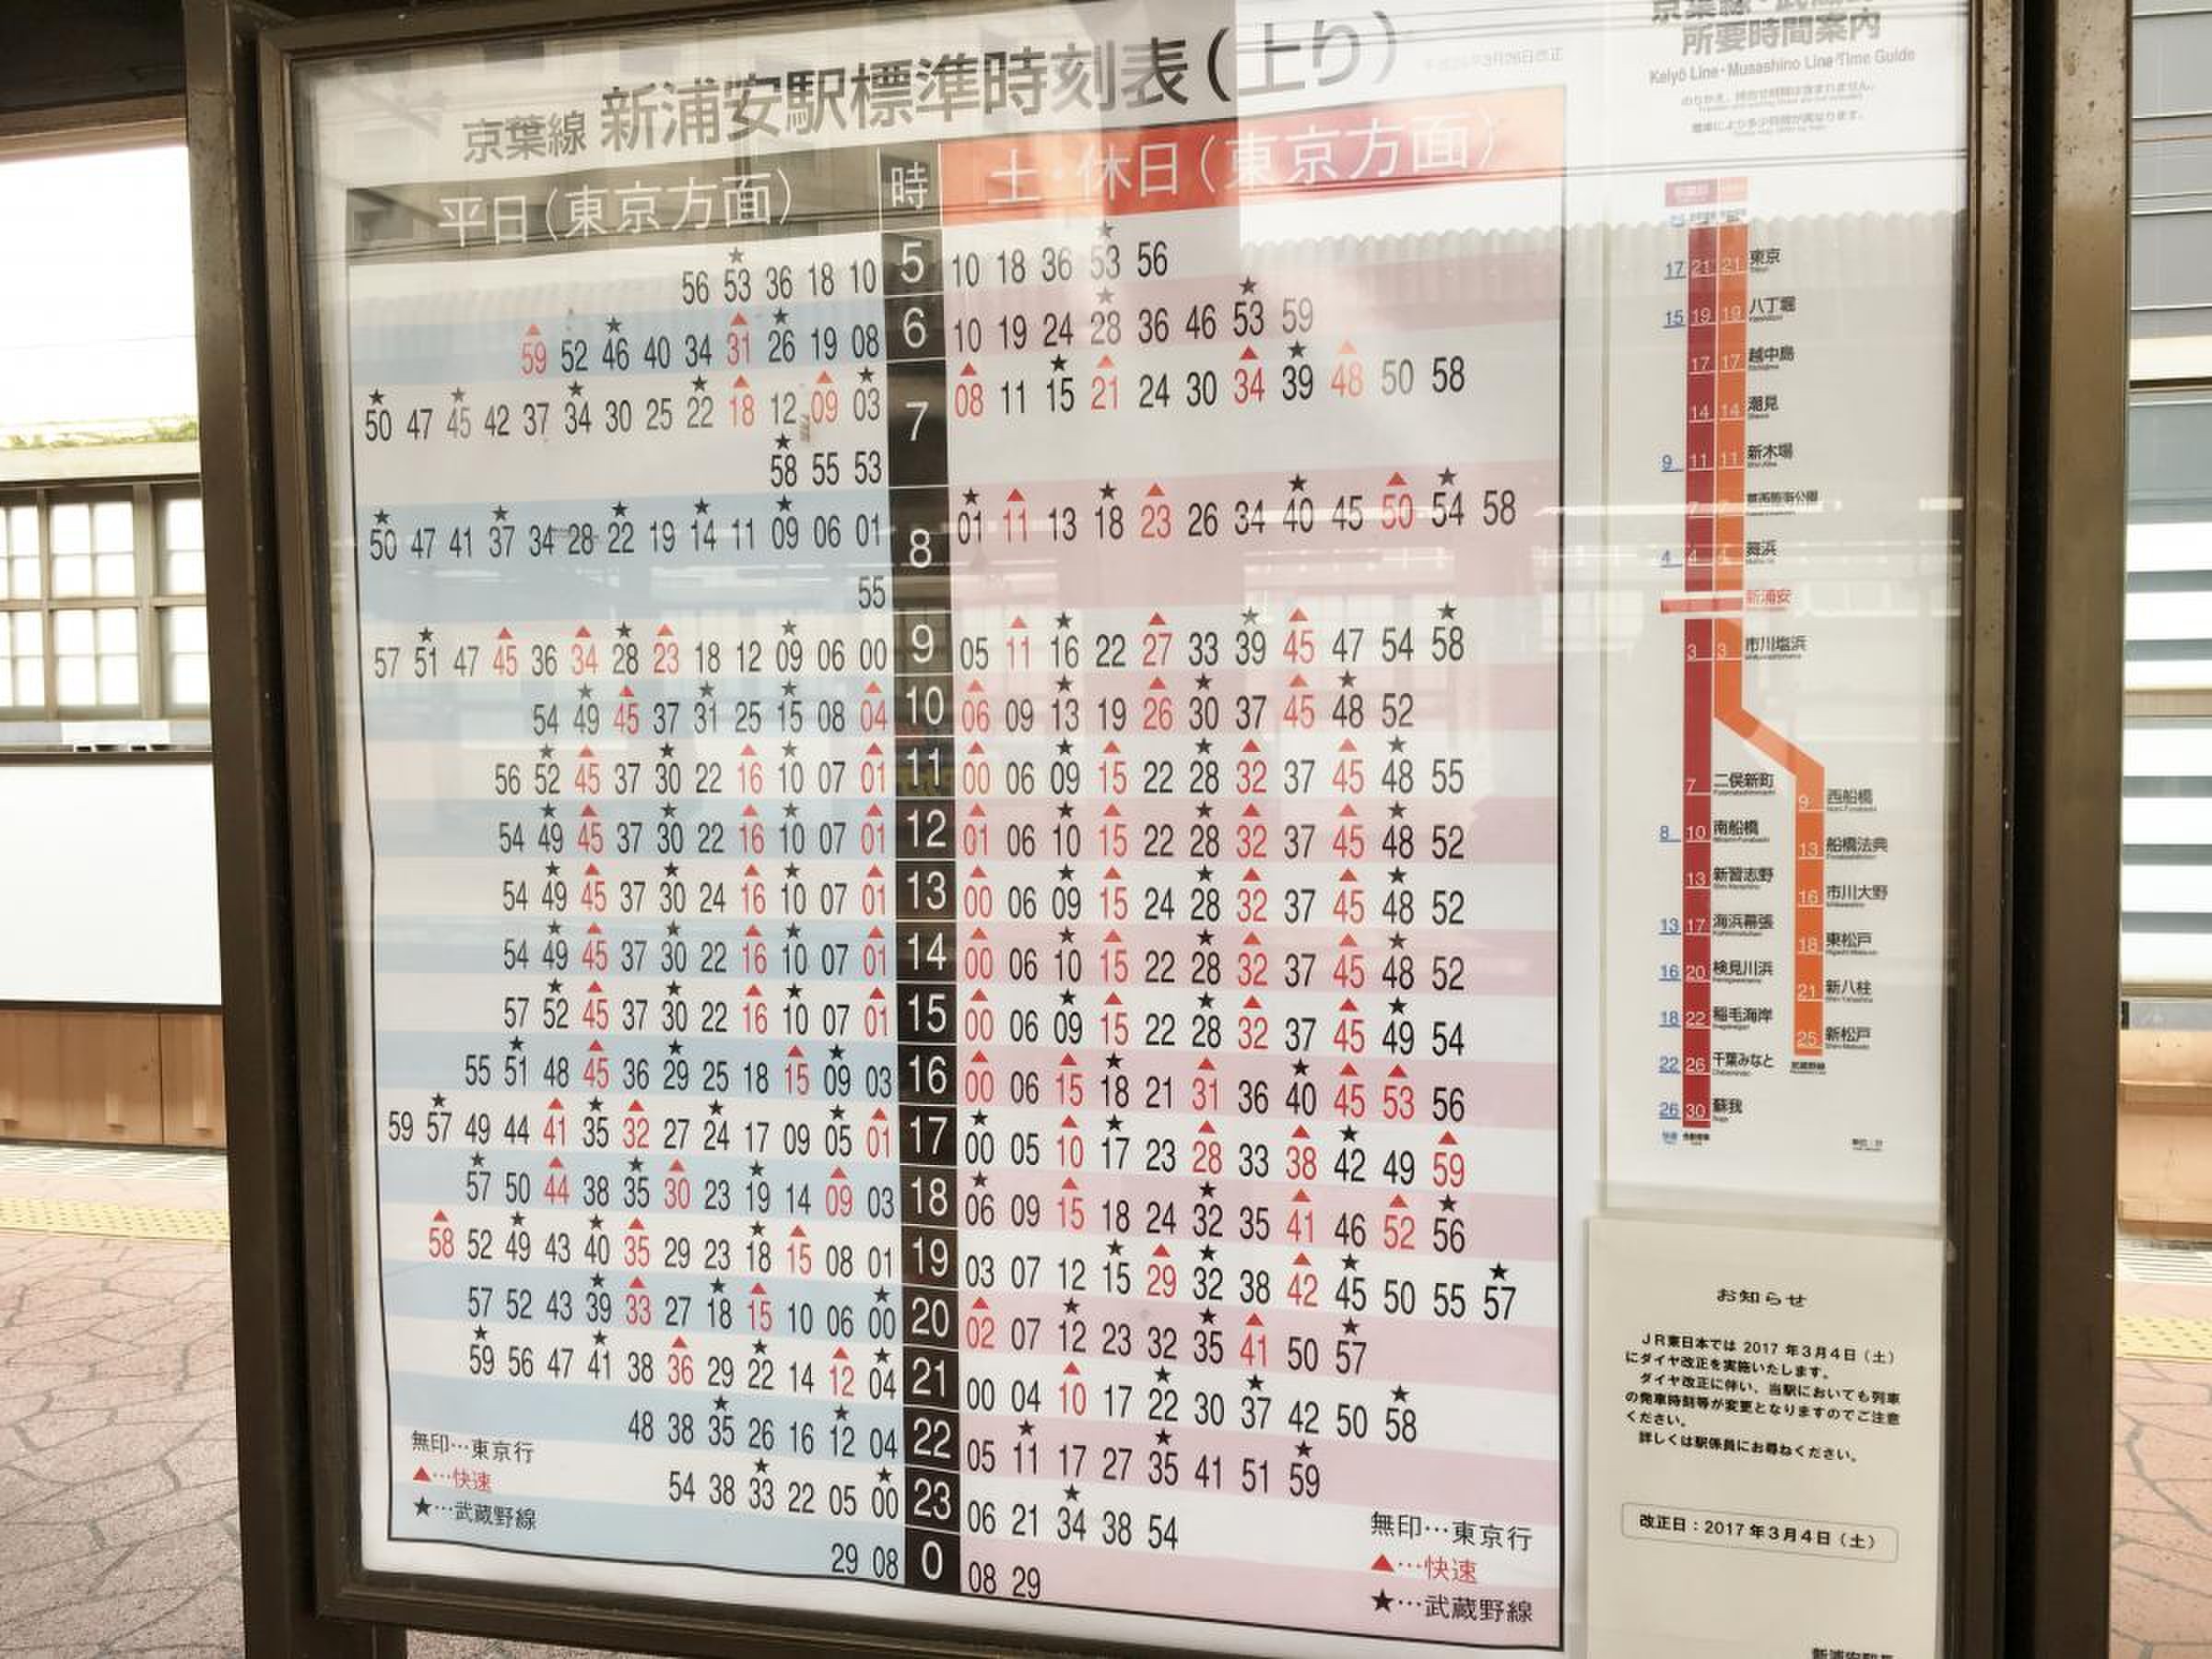 京葉線 新浦安駅標準時刻表(上り)
平日(東京方面) 時 土・休日(東京方面)
56 ★53 36 18 10 5 10 18 36 ★53 56
▲59 52 ★46 40 34 ▲31 ★26 19 08 6 10 19 24 ★28 36 46 ★53 59
★50 47 ★45 42 37 ★34 30 25 ★22 ▲18 12 ▲09 ★03 7 ▲08 11 ★15 ▲21 24 30 ▲34 ★39 ▲48 50 58
★58 55 53
★50 47 41 ★37 34 28 ★22 19 ★14 11 ★09 06 01 8 ★01 ▲11 13 ★18 ▲23 26 34 ★40 45 ▲50 ★54 58
55
57 ★51 47 ▲45 36 ▲34 ★28 ▲23 18 12 ★09 06 00 9 05 ▲11 ★16 22 ▲27 33 ★39 ▲45 47 54 ★58
54 ★49 ▲45 37 ★31 25 ★15 08 ▲04 10 ▲06 09 ★13 19 ▲26 ★30 37 ▲45 ★48 52
56 ★52 ▲45 37 ★30 22 ▲16 ★10 07 ▲01 11 ▲00 06 ★09 ▲15 22 ★28 ▲32 37 ▲45 ★48 55
54 ★49 ▲45 37 ★30 22 ▲16 ★10 07 ▲01 12 ▲01 06 ★10 ▲15 22 ★28 ▲32 37 ▲45 ★48 52
54 ★49 ▲45 37 ★30 24 ▲16 ★10 07 ▲01 13 ▲00 06 ★09 ▲15 24 ★28 ▲32 37 ▲45 ★48 52
54 ★49 ▲45 37 ★30 22 ▲16 ★10 07 ▲01 14 ▲00 06 ★10 ▲15 22 ★28 ▲32 37 ▲45 ★48 52
57 ★52 ▲45 37 ★30 22 ▲16 ★10 07 ▲01 15 ▲00 06 ★09 ▲15 22 ★28 ▲32 37 ▲45 ★49 54
55 ★51 48 ▲45 36 ★29 25 18 ▲15 ★09 03 16 ▲00 06 ▲15 ★18 21 ▲31 36 ★40 ▲45 ▲53 56
59 ★57 49 44 ▲41 ★35 ▲32 27 ★24 17 09 ★05 ▲01 17 ★00 05 ▲10 ★17 23 ▲28 33 ▲38 ★42 49 ▲59
★57 50 ▲44 38 ★35 ▲30 23 ★19 14 ▲09 03 18 ★06 09 ▲15 18 24 ★32 35 ▲41 46 ▲52 ★56
▲58 52 ★49 43 ★40 ▲35 29 23 ★18 ▲15 08 01 19 03 07 12 ★15 ▲29 ★32 38 ▲42 ★45 50 55 ★57
57 52 43 ★39 ▲33 27 ★18 ▲15 10 06 ★00 20 ▲02 07 ★12 23 32 ★35 ▲41 50 ★57
★59 56 47 ★41 38 ▲36 29 ★22 14 ▲12 ★04 21 00 04 ▲10 17 ★22 30 ★37 42 50 ★58
48 38 ★35 26 16 ★12 04 22 05 ★11 17 27 ★35 41 51 ★59
54 38 ★33 22 05 ★00 23 06 21 ★34 38 54
29 08 0 08 29
無印…東京行
▲…快速
★…武蔵野線
無印…東京行
▲…快速
★…武蔵野線
所要時間案内
Keiyō Line・Musashino Line Time Guide
のりかえ、待合せ時間は含まれません。
電車により多少時間が異なります。
17 21 21 東京
15 19 19 八丁堀
17 17 越中島
14 14 潮見
9 11 11 新木場
7 7 葛西臨海公園
4 4 4 舞浜
新浦安
3 3 市川塩浜
7 二俣新町
9 西船橋
8 10 南船橋
13 船橋法典
13 新習志野
16 市川大野
13 17 海浜幕張
18 東松戸
16 20 検見川浜
21 新八柱
18 22 稲毛海岸
25 新松戸
22 26 千葉みなと
武蔵野線
26 30 蘇我
お知らせ
JR東日本では 2017 年3月4日(土)
にダイヤ改正を実施いたします。
ダイヤ改正に伴い、当駅においても列車
の発車時刻等が変更となりますのでご注意
ください。
詳しくは駅係員にお尋ねください。
改正日:2017年3月4日(土)
新浦安駅長